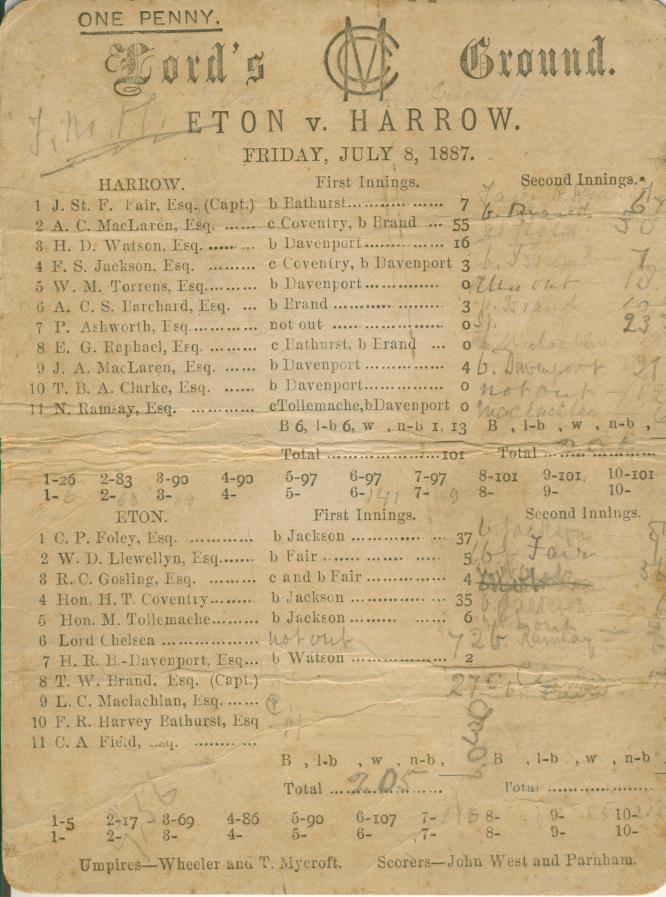 ONE PENNY.
Lord's MCC Ground.
ETON v. HARROW.
FRIDAY, JULY 8, 1887.
HARROW. First Innings. Second Innings.
1 J. St. F. Fair, Esq. (Capt.) b Bathurst............ 7
2 A. C. MacLaren, Esq. ...... c Coventry, b Brand ... 55 b. Brand
3 H. D. Watson, Esq. ...... ... b Davenport............ 16
4 F. S. Jackson, Esq. .......... c Coventry, b Davenport 3 7
5 W. M. Torrens, Esq. .......... b Davenport............ 0 run out
6 A. C. S. Barchard, Esq. ... b Brand ............... 3 b. Brand
7 P. Ashworth, Esq............. not out ............... 0 23
8 E. G. Raphael, Esq. .......... c Bathurst, b Brand ... 0
9 J. A. MacLaren, Esq. ...... b Davenport............ 4 b. Davenport
10 T. B. A. Clarke, Esq. ...... b Davenport............ 0 not out
11 N. Ramsay, Esq. ............ cTollemache,bDavenport 0 Maclachlan
B 6, l-b 6, w , n-b 1, 13 B , l-b , w , n-b ,
Total ..................101 Total ..................
1-26 2-83 3-90 4-90 5-97 6-97 7-97 8-101 9-101 10-101
1- 2- 3- 4- 5- 6-141 7- 8- 9- 10-
ETON. First Innings. Second Innings.
1 C. P. Foley, Esq. .......... b Jackson ............ 37 b Jackson
2 W. D. Llewellyn, Esq....... b Fair ............... 5 b Fair
3 R. C. Gosling, Esq. ...... c and b Fair ......... 4
4 Hon. H. T. Coventry........ b Jackson ............ 35 b Jackson
5 Hon. M. Tollemache........ b Jackson ............ 6
6 Lord Chelsea ............... not out 72 b Ramsay
7 H. R. B.-Davenport, Esq... b Watson ............ 2
8 T. W. Brand, Esq. (Capt.) 27 b. Fair
9 L. C. Maclachlan, Esq.......
10 F. R. Harvey Bathurst, Esq
11 C. A Field, Esq. ..........
B , l-b , w , n-b, B , l-b , w , n-b
Total ........205 Total ..................
1-5 2-17 3-69 4-86 5-90 6-107 7- 8- 9- 10-
1- 2- 3- 4- 5- 6- 7- 8- 9- 10-
Umpires—Wheeler and T. Mycroft. Scorers—John West and Parnham.